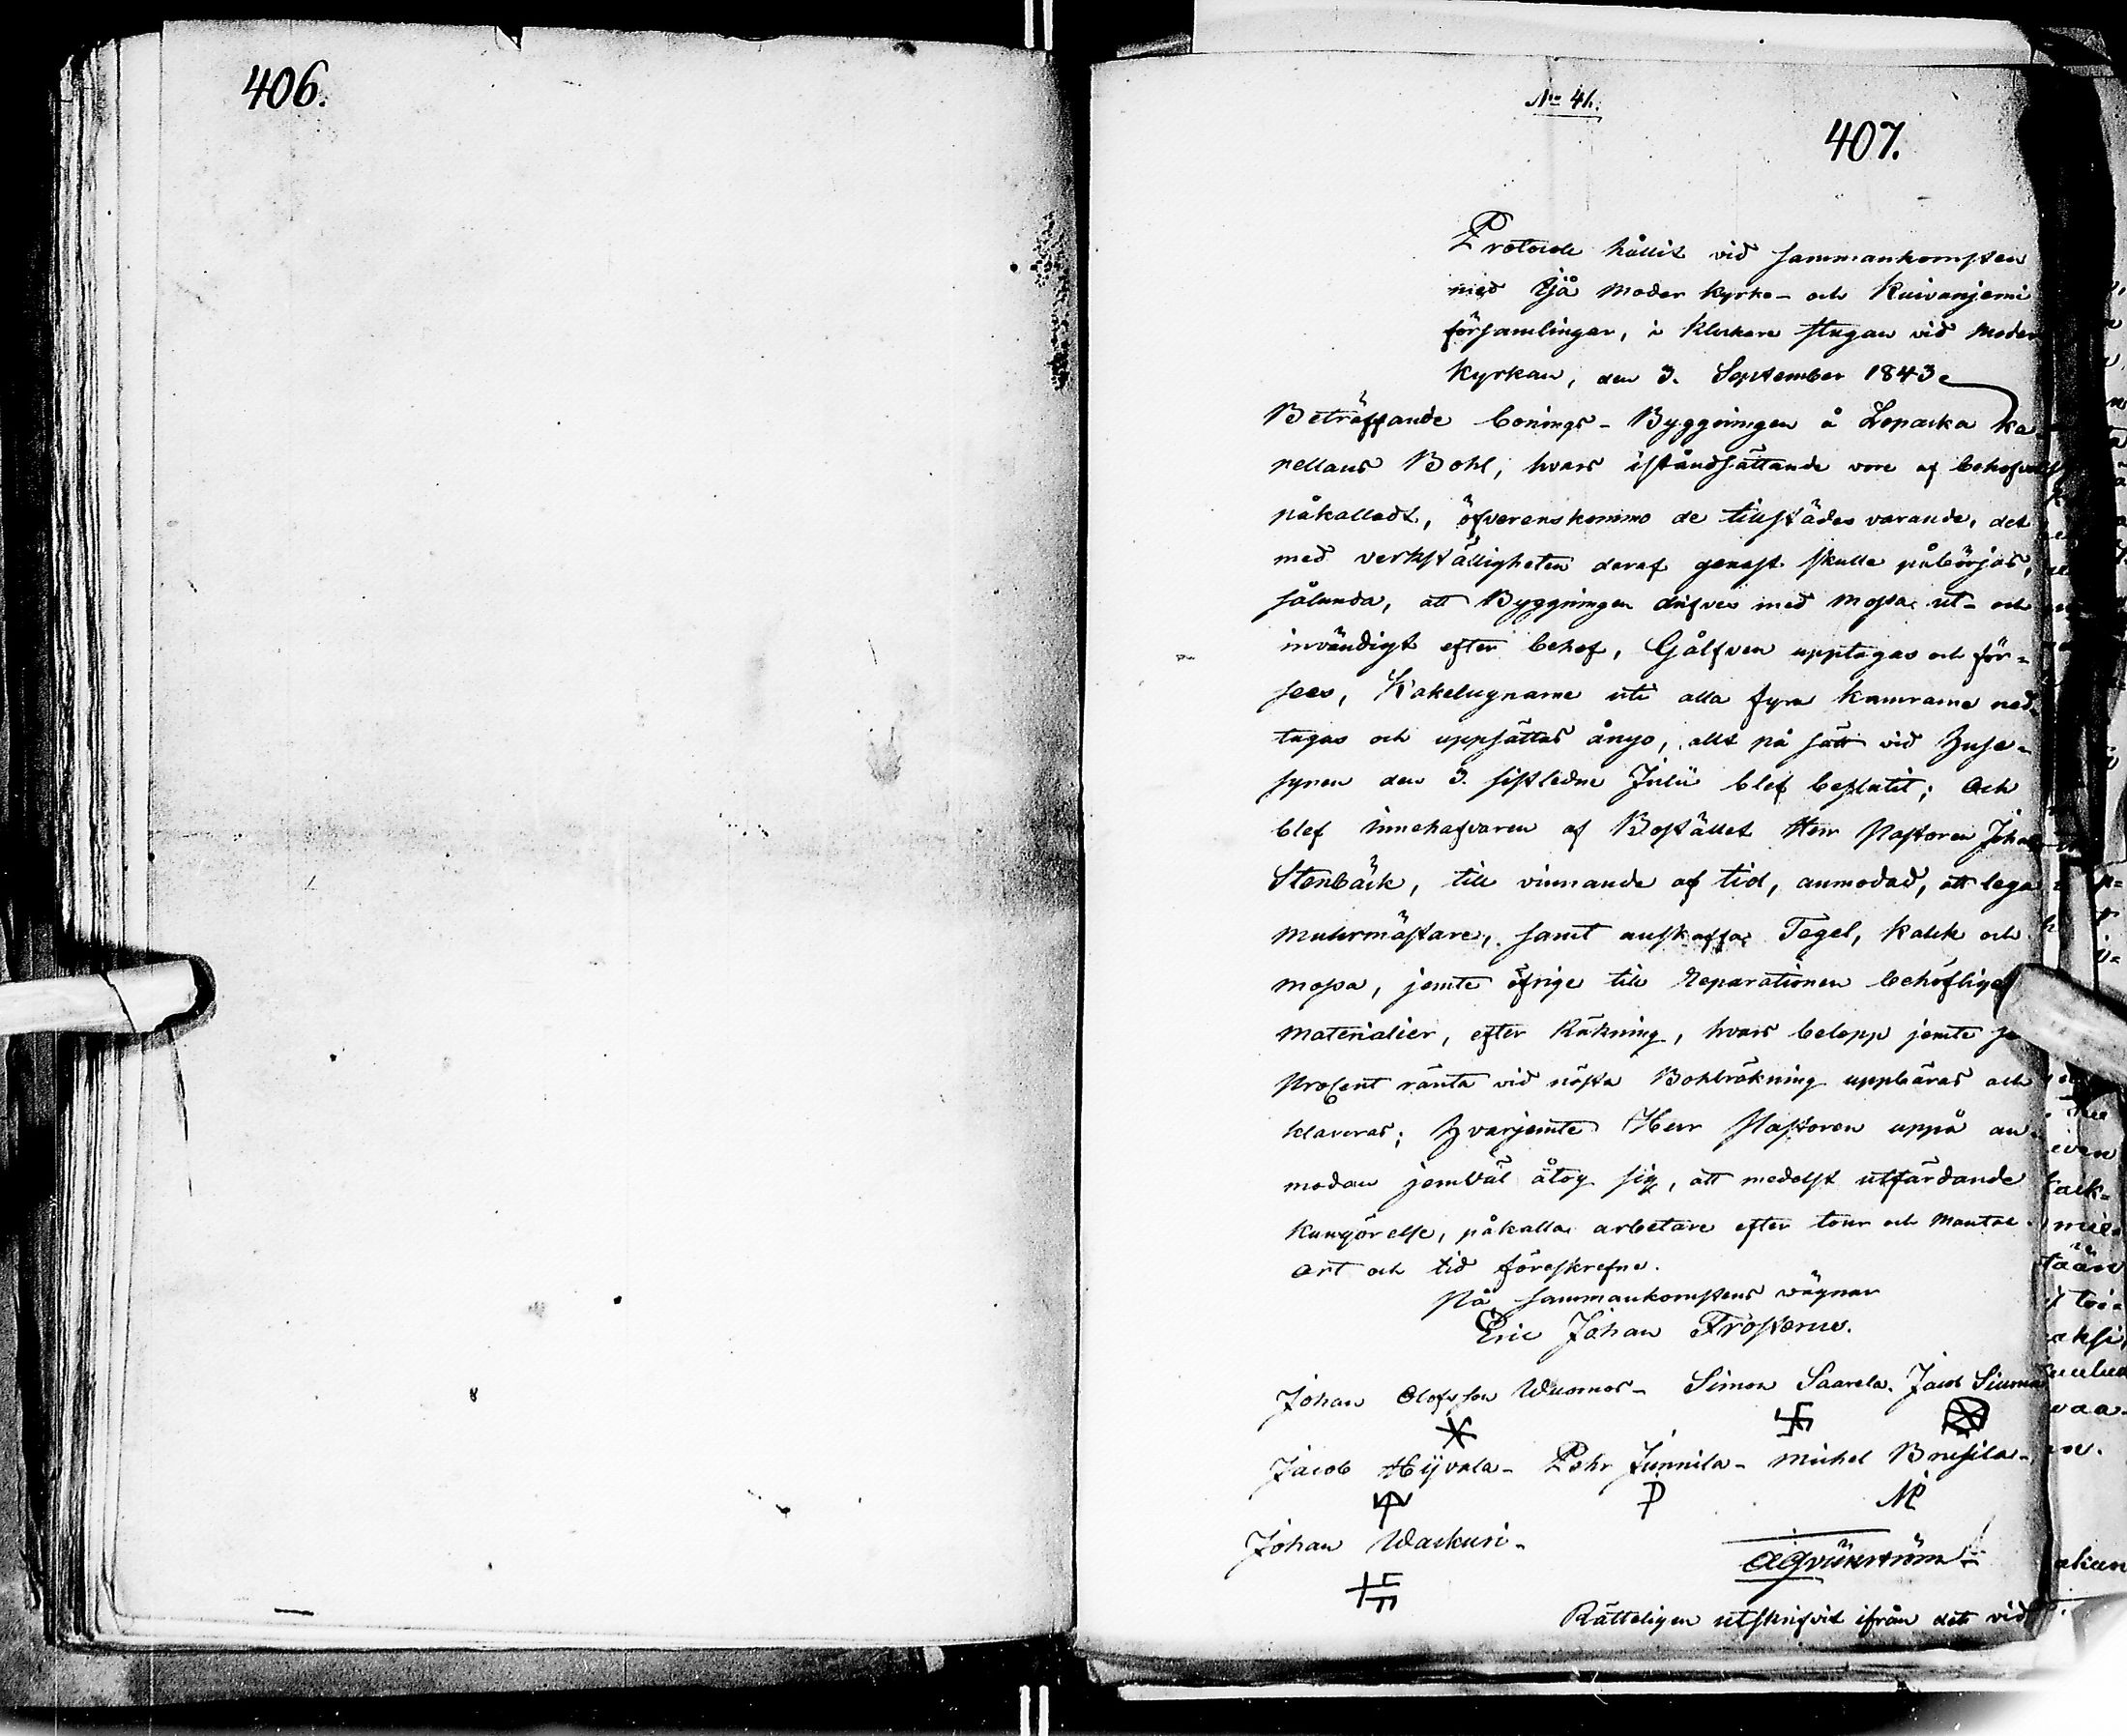 406.
No 41.
407.
Protocoll hållit vid sammankomsten
med Ijå Moder kyrko- och Kuivanjemi
församlingar, i Klockare stugan vid Moder
kyrkan, den 3. September 1843
Beträffande bonings-Byggningen å Lopacka Ka-
pellans Bohl, hvars iståndsättande vore af behofvet
påkalladt, öfverenskommo de tillstädes varande, det
med verkställigheten deraf genast skulle påbörjas,
sålunda, att Byggningen drifves med mossa ut- och
invändigt efter behof, Gålfven upptagas och för-
sees, Kakelugname uti alla fyra kamrarne ned-
tagas och uppsättas ånyo, allt på sätt vid Huse-
synen den 3. sistledne Julii blef beslutit; Och
blef innehafvaren af Bostället Herr Pastoren Johan
Stenbäck, till vinnande af tid, anmodad, att lega
murmästare, samt anskaffa Tegel, kalk och
mossa, jemte öfrige till Reparationen behöflige
materialier, efter Räkning, hvars belopp jemte
procent ränta vid nästa Bohlräkning uppbäras och
klareras; Hvarjemte Herr Pastoren uppå an-
modan jemväl åtog sig, att medelst utfärdande
kungörelse, påkalla arbetare efter tour och mantal.
Ort och tid föreskrefne.
På sammankomstens vägnar
Eric Johan Frosterus.
Johan Olofsson Wuornos- Simon Saarela. Jacob
Jacob Hyvala- Pehr Junnila- Michel
P M
Johan Wackuri-
Rätteligen utskrifvit ifrån det vid